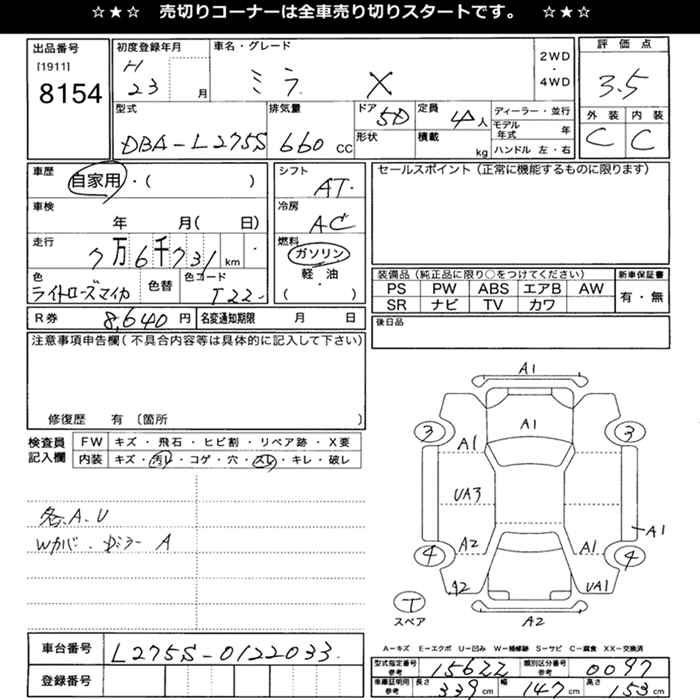 ☆★☆ 売切りコーナーは全車売り切りスタートです。 ☆★☆
出品番号
[1911]
8154
初度登録年月
H
23 月
車名・グレード
ミラ X
2WD
・
4WD
評価点
3.5
外装 内装
C C
型式
DBA-L275S
排気量
660 CC
ドア
5D
形状
定員
4人
積載
kg
ディーラー・並行
モデル年式 年
ハンドル 左・右
車歴
自家用・( )
車検
年 月( 日)
走行
7万6千731 km
色
ライトローズマイカ
色替
色コード
T22
シフト
AT
冷房
AC
燃料
ガソリン
軽・油
( )
セールスポイント(正常に機能するものに限ります)
装備品(純品品に限り○をつけてください)
PS PW ABS エアB AW
SR ナビ TV カワ
新車保証書
有・無
後日品
R券 8,640円
名変通知期限 月 日
注意事項申告欄(不具合内容等は具体的に記入して下さい)
修復歴 有 〔箇所 〕
検査員
記入欄
FW キズ・飛石・ヒビ割・リペア跡・X要
内装 キズ・汚レ・コゲ・穴・スレ・キレ・破レ
各A.U
Wカバー・ A
A1
A1
3 3
A1
UA3
A1
4 4
A2 A1
A2 UA1
T
スペア
A2
A-キズ E-エクボ U-凹み W-補修跡 S-サビ C-腐食 XX-交換済
車台番号 L275S-0122033
登録番号
型式指定番号
参考
15622
類別区分番号
参考
0097
車庫証明用
参考
長さ 339cm 幅 147cm 高さ 153cm